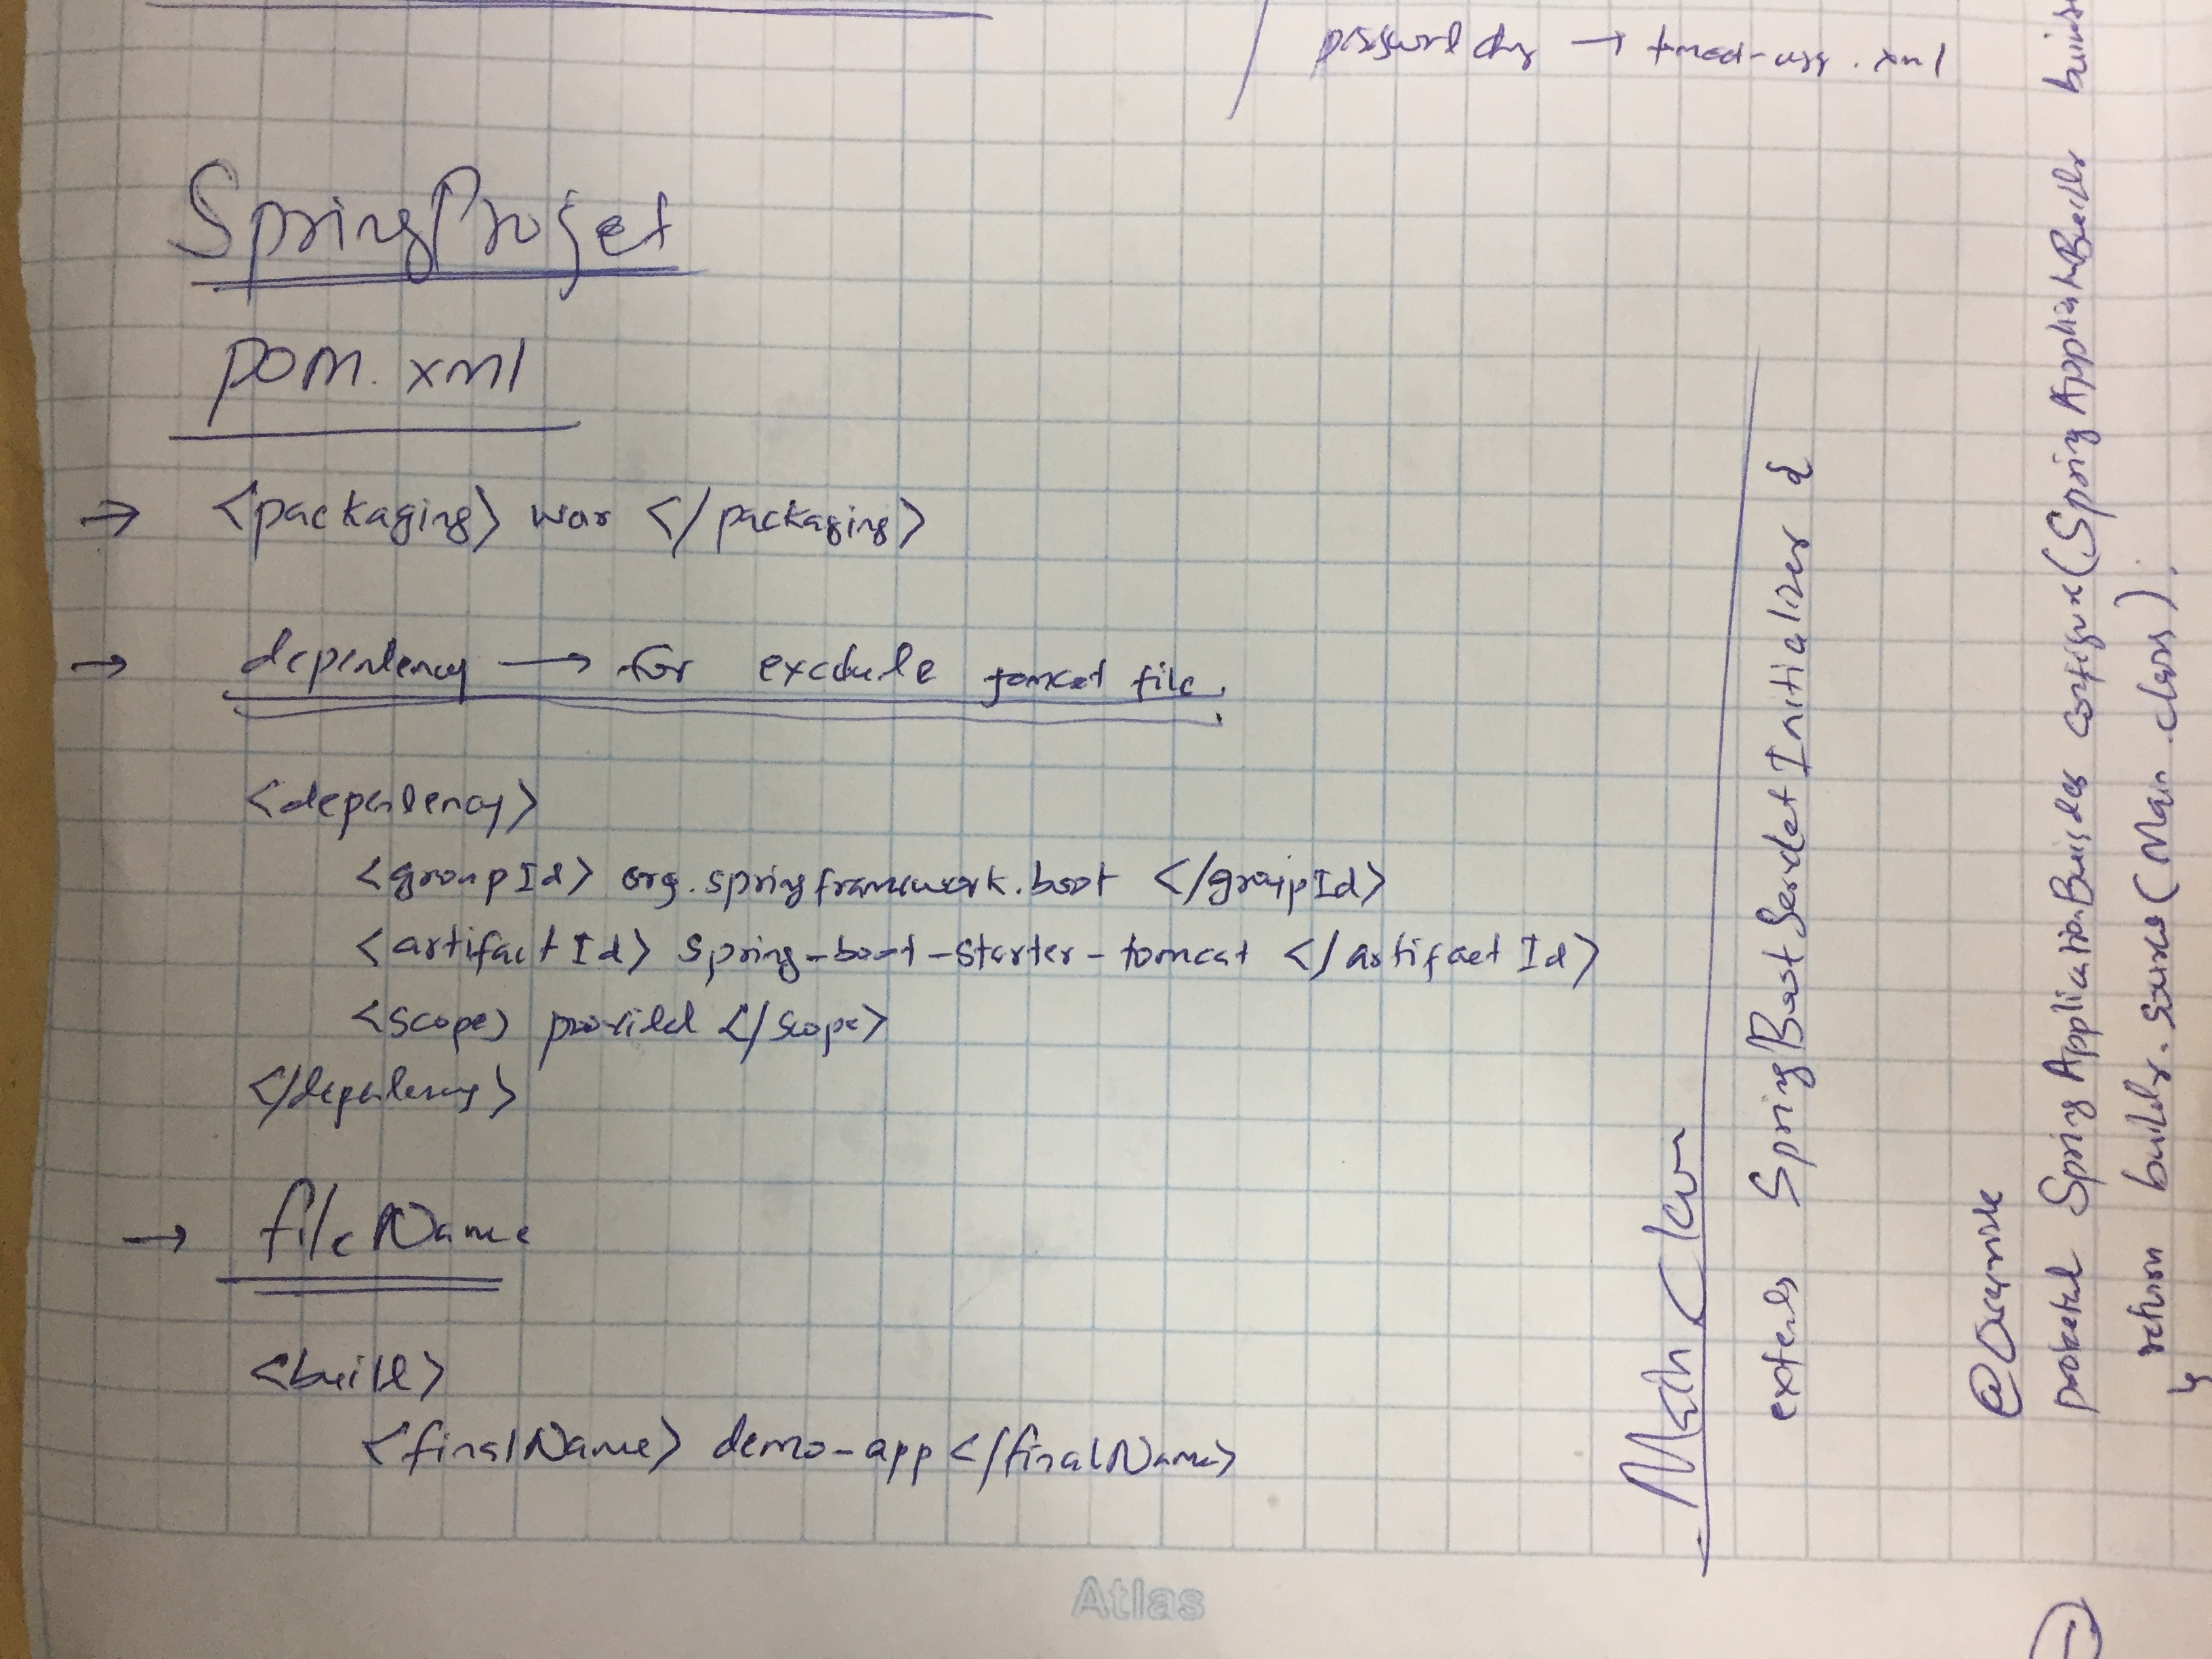 password chg → tomcat-usr.xml
Spring Project
pom.xml
→ <packaging> war </packaging>
→ dependency → for exclude tomcat file.
<dependency>
<groupId> org.springframework.boot </groupId>
<artifactId> spring-boot-starter-tomcat </artifactId>
<scope> provided </scope>
</dependency>
→ fileName
<build>
<finalName> demo-app </finalName>
Atlas
Main class
extends SpringBootServletInitializer {
@Override
protected SpringApplicationBuilder configure(SpringApplicationBuilder
return builder.source(Main.class);
}
1